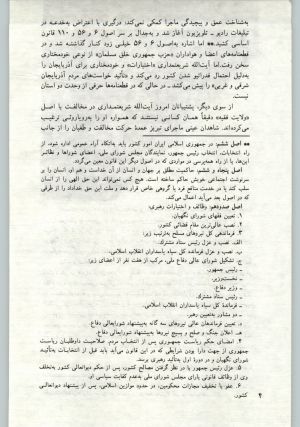 به‌شناخت عمق و پیچیدگی ماجرا کمکی نمی‌کند، درگیری با اعتراض به‌خدعه در
تبلیغات رادیو ـ تلویزیون آغاز شد و به‌جدال بر سر اصول ۶ و ۵۶ و ۱۱۰ قانون
اساسی کشید.** اما اشاره به‌اصول ۶ و ۵۶ خیلی زود کنار گذاشته شد و در
قطعنامه‌های اعضا و هواداران «حزب جمهوری خلق مسلمان» از نوعی خودمختاری
سخن رفت. اما آیت‌الله شریعتمداری «اختیارات» و خودمختاری برای آذربایجان را
به‌دلیل احتمال فدراتیو شدن کشور رد می‌کند و تأکید خواست‌های مردم آذربایجان
شرقی و غربی» را پیش می‌کشد ـ در حالی که در قطعنامه‌ها حرفی از وحدت دو استان
نیست.
از سوی دیگر، پشتیبانان امروز آیت‌الله شریعتمداری در مخالفت با اصل
«ولایت فقیه» دقیقاً همان کسانی نیستند که همواره او را به‌رویارویی ترغیب
کرده‌اند. شاهدان عینی ماجرای تبریز عمدهٔ حرکت مخالفت و طغیان را از جانب
** اصل ششم ـ در جمهوری اسلامی ایران امور کشور باید به‌اتکاء آراء عمومی اداره شود، از
راه انتخابات: انتخاب رئیس جمهور، نمایندگان مجلس شورای ملی، اعضای شوراها و نظائر
اینها، یا از راه همه‌پرسی در مواردی که در اصول دیگر این قانون معین می‌گردد.
اصل پنجاه و ششم ـ حاکمیت مطلق بر جهان و انسان از آن خداست و هم او، انسان را بر
سرنوشت اجتماعی خویش حاکم ساخته است. هیچ کس نمی‌تواند این حق الهی را از انسان
سلب کند یا در خدمت منافع فرد یا گروهی خاص قرار دهد و ملت این حق خداداد را از طرقی
که در اصول بعد می‌آید اعمال می‌کند.
اصل صدودهم: وظائف و اختیارات رهبری:
۱. تعیین فقهای شورای نگهبان.
۲. نصب عالی‌ترین مقام قضائی کشور.
۳. فرماندهی کل نیروهای مسلح به‌ترتیب زیر:
الف. نصب و عزل رئیس ستاد مشترک.
ب. نصب و عزل فرمانده کل سپاه پاسداران انقلاب اسلامی.
ج. تشکیل شورای عالی دفاع ملی، مرکب از هفت نفر از اعضای زیر:
ـ رئیس جمهور.
ـ نخست‌وزیر.
ـ وزیر دفاع.
ـ رئیس ستاد مشترک.
ـ فرمانده کل سپاه پاسداران انقلاب اسلامی.
ـ دو مشاور به‌تعیین رهبر.
د. تعیین فرماندهان عالی نیروهای سه گانه به‌پیشنهاد شورایعالی دفاع.
هـ. اعلان جنگ و صلح و بسیج نیروها به‌پیشنهاد شورایعالی دفاع.
۴. امضای حکم ریاست جمهوری پس از انتخاب مردم. صلاحیت داوطلبان ریاست
جمهوری از جهت دارا بودن شرایطی که در این قانون می‌آید باید قبل از انتخابات به‌تأیید
شورای نگهبان و در دورهٔ اول به‌تأیید رهبری برسد.
۵. عزل رئیس جمهور با در نظر گرفتن مصالح کشور، پس از حکم دیوانعالی کشور به‌تخلف
وی از وظائف قانونی یا رأی مجلس شورای ملی به‌عدم کفایت سیاسی او.
۶. عفو یا تخفیف مجازات محکومین، در حدود موازین اسلامی، پس از پیشنهاد دیوانعالی
کشور.
۴